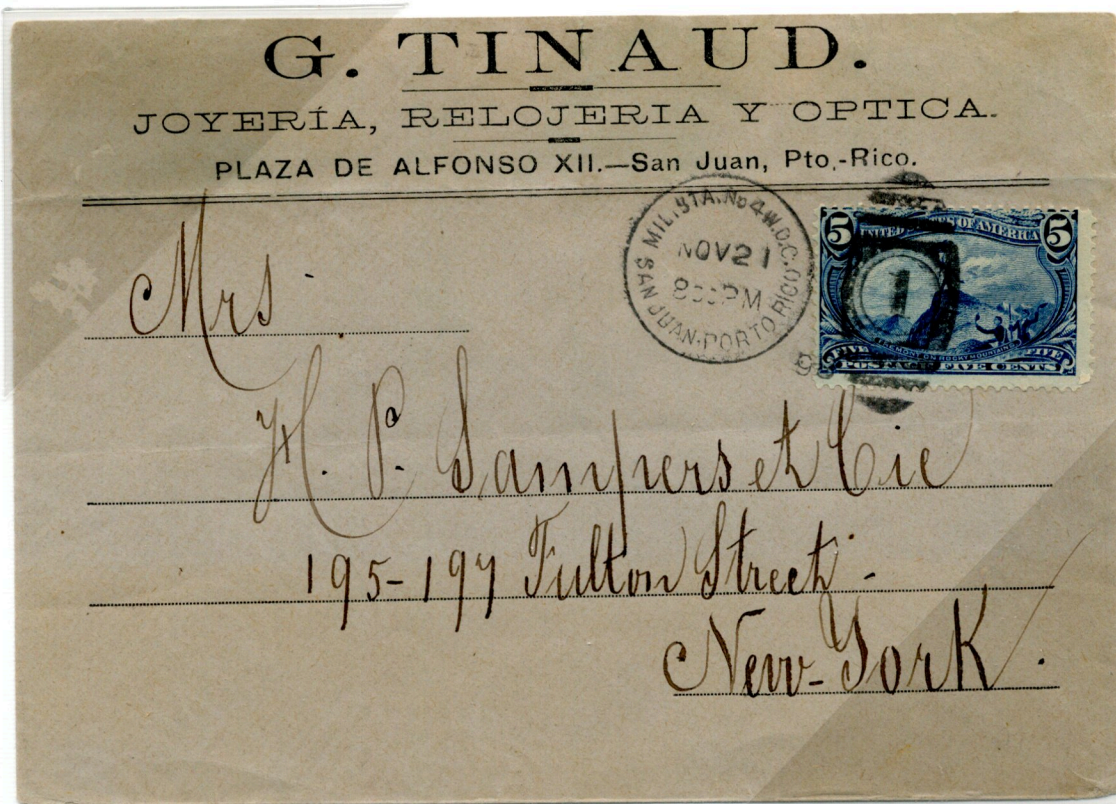 G. TINAUD.
JOYERÍA, RELOJERIA Y OPTICA.
PLAZA DE ALFONSO XII.—San Juan, Pto.-Rico.
MIL. STA. No 4 W.D.C.
NOV 21
PM
SAN JUAN-PORTO RICO
1
5 5
UNITED STATES OF AMERICA
FIVE FIVE
FIVE CENTS
Mrs
H. P. Sampers et Cie
195-197 Fulton Street -
New-York.